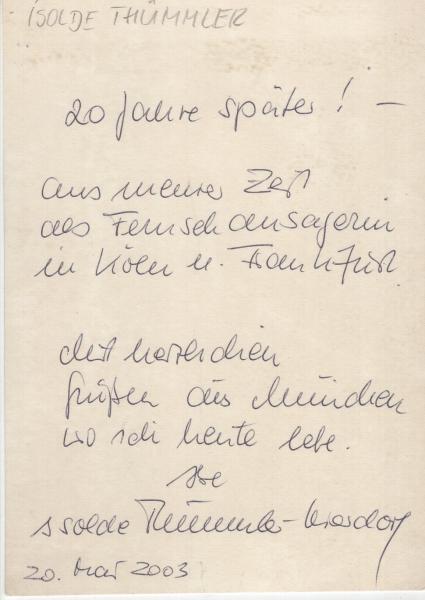 ISOLDE THÜMMLER
20 Jahre später! –
aus meiner Zeit
als Fernsehansagerin
in Köln u. Frankfurt
Mit herzlichen
Grüßen aus München
wo ich heute lebe.
Ihre
Isolde Thümmler-
20. Mai 2003